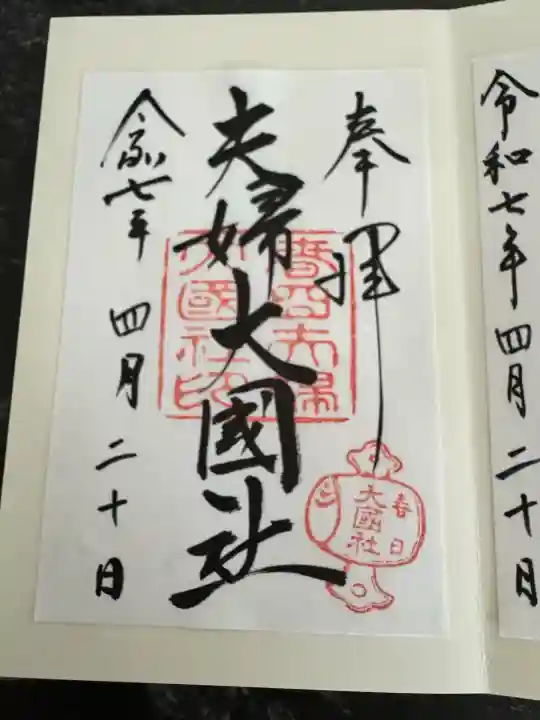 奉拝
夫婦大國社
令和七年 四月 二十日
春日夫婦
大國社印
春日
大國社
令和七年 四月 二十日